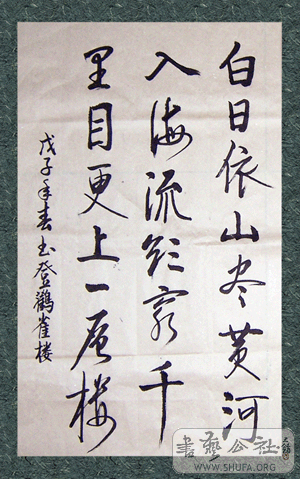 白日依山尽黄河
入海流欲穷千
里目更上一层楼
戊子年春书登鸛雀楼
書藝公社
WWW.SHUFA.ORG